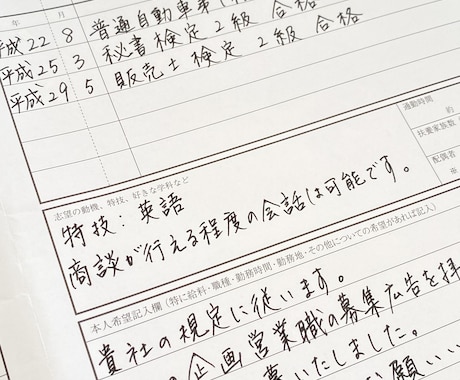 年 月
平成22 8 普通自動車第
平成25 3 秘書検定2級 合格
平成29 5 販売士検定 2級 合格
通勤時間
約
扶養家族数
配偶者
※
志望の動機、特技、好きな学科など
特技：英語
商談が行える程度の会話は可能です。
本人希望記入欄（特に給料・職種・勤務時間・勤務地・その他についての希望があれば記入）
貴社の規定に従います。
の企画営業職の募集広告を拝
募いたしました。
願い